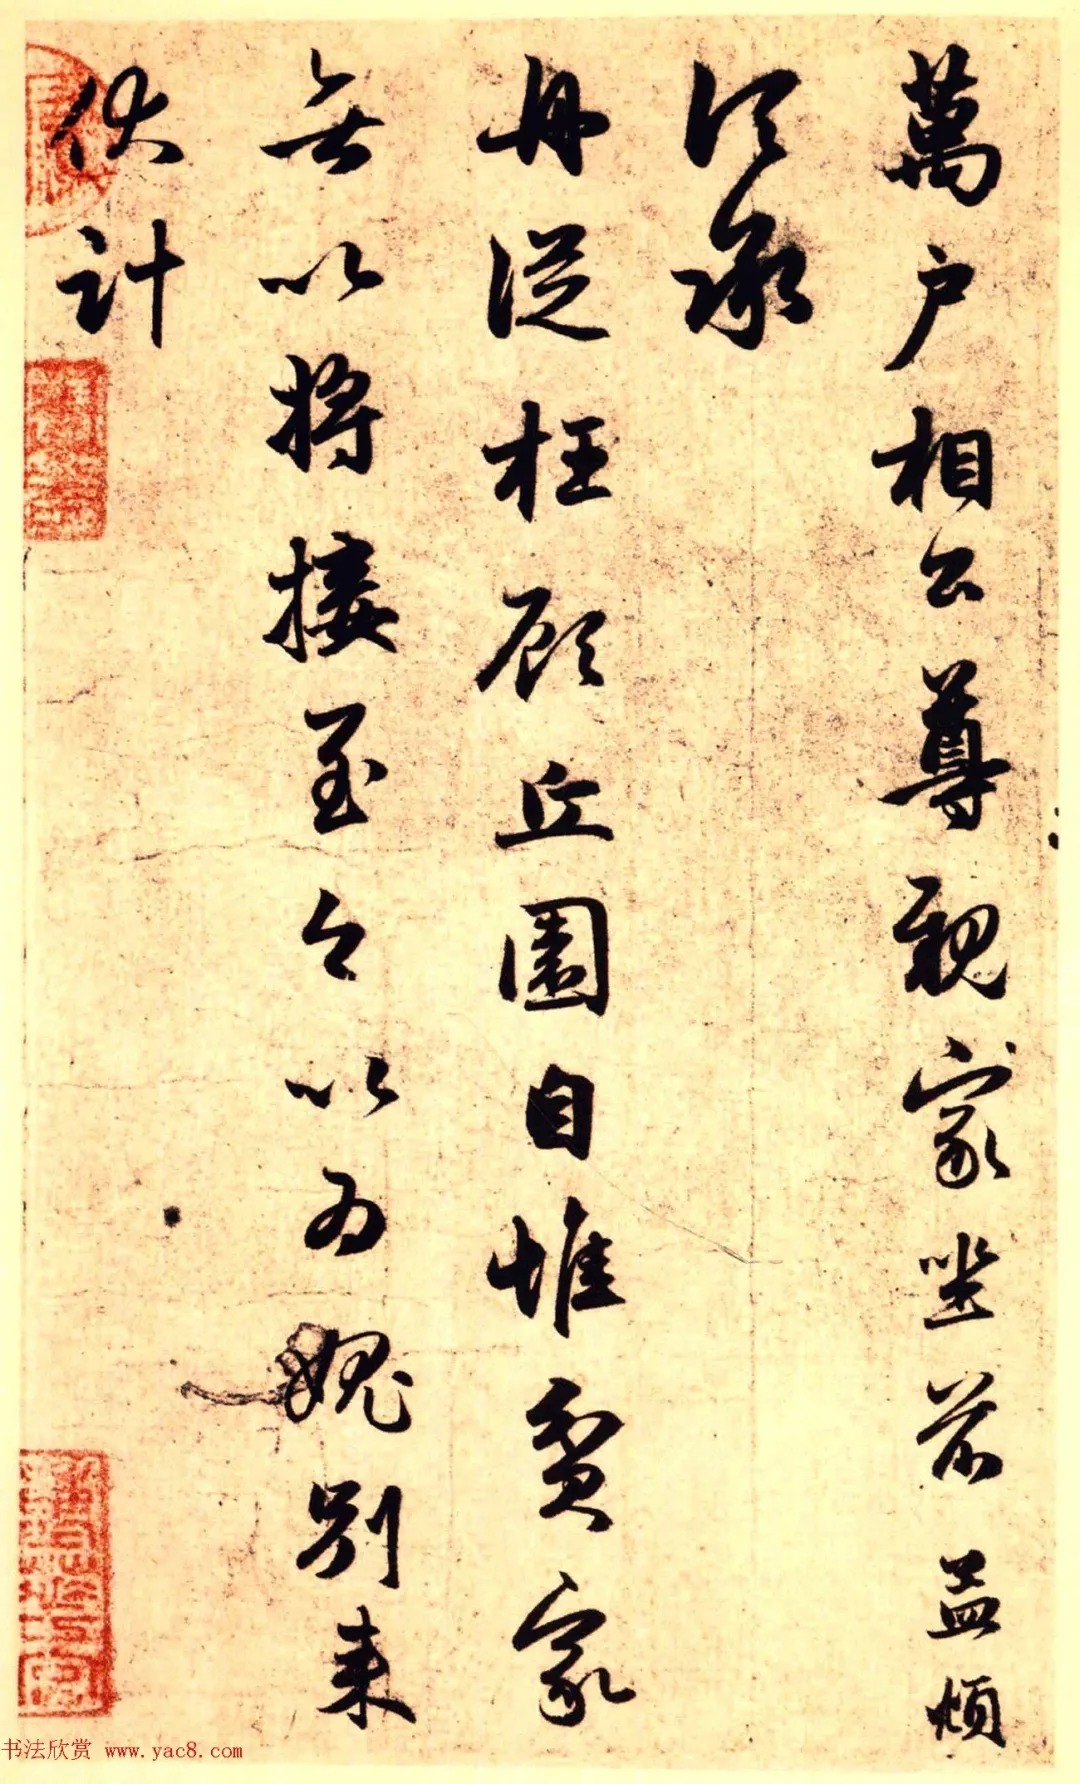 萬户相公尊親家坐前孟頫
頃承
舟從枉顧丘園自惟貧家
無以將接至今以為愧別来
伏計
书法欣赏 www.yac8.com